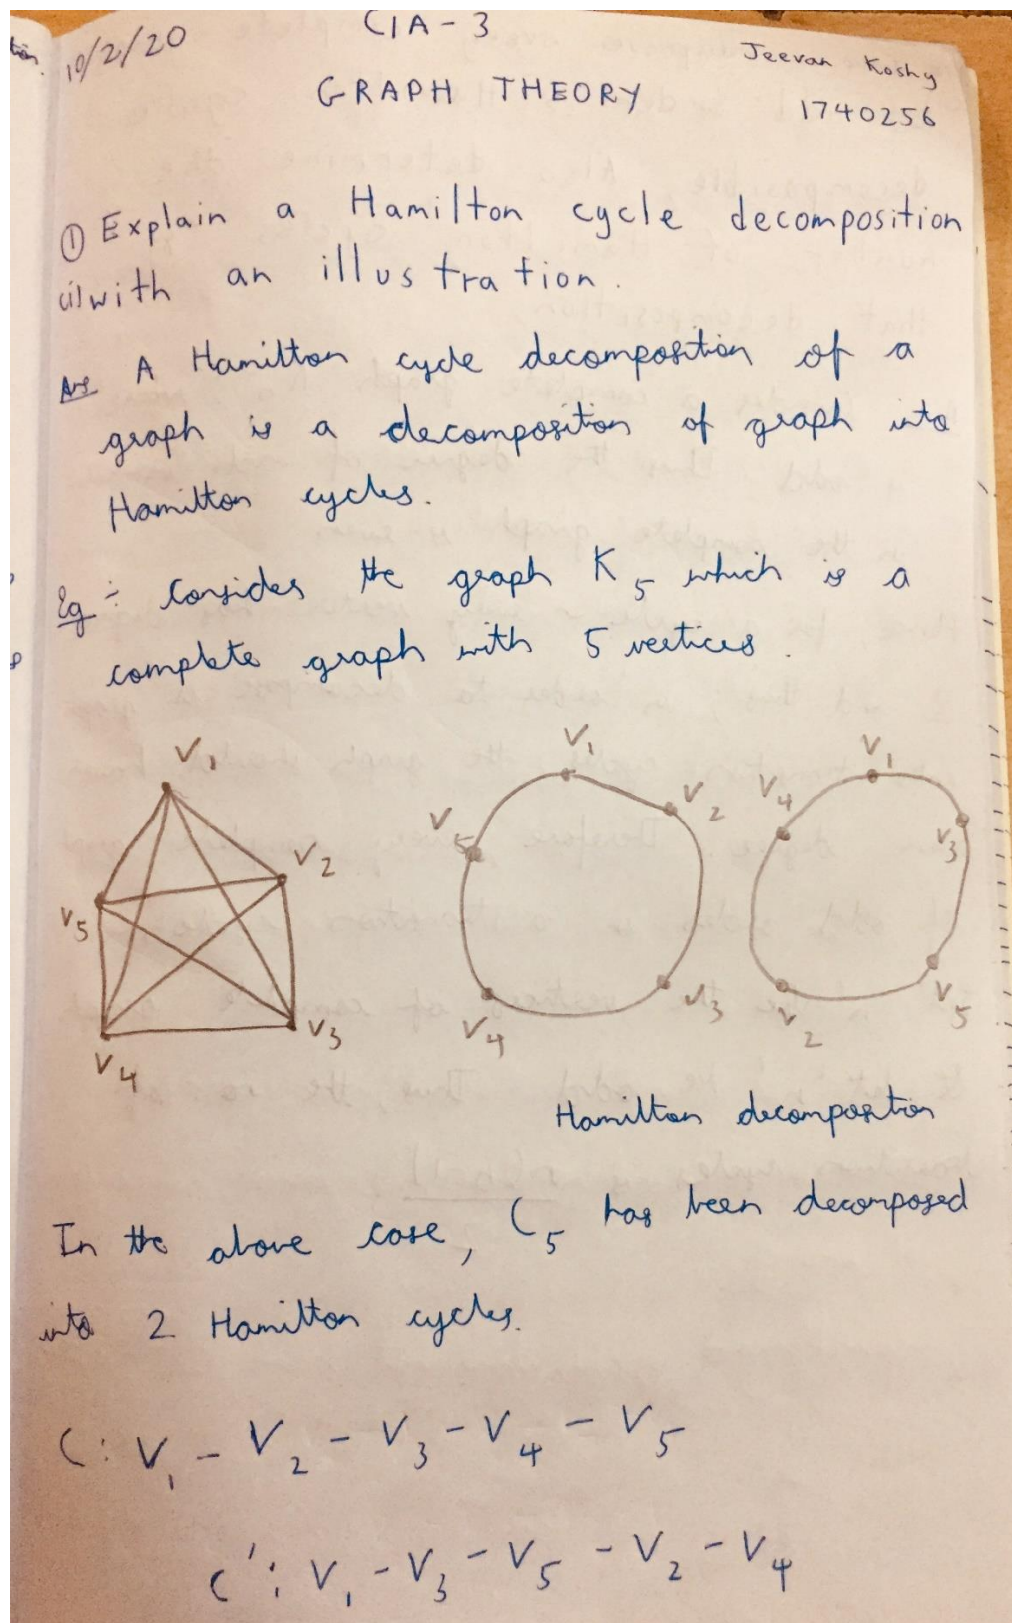 10/2/20
CIA - 3
Jeevan Koshy
GRAPH THEORY
1740256
① Explain a Hamilton cycle decomposition
(i) with an illustration.
Ans A Hamilton cycle decomposition of a
graph is a decomposition of graph into
Hamilton cycles.
Eg :- Consider the graph K5 which is a
complete graph with 5 vertices.
V1
V2
V5
V3
V4
V1
V2
V5
V3
V4
V1
V4
V3
V5
V2
Hamilton decomposition
In the above case, C5 has been decomposed
into 2 Hamilton cycles.
C: V1 - V2 - V3 - V4 - V5
C': V1 - V3 - V5 - V2 - V4